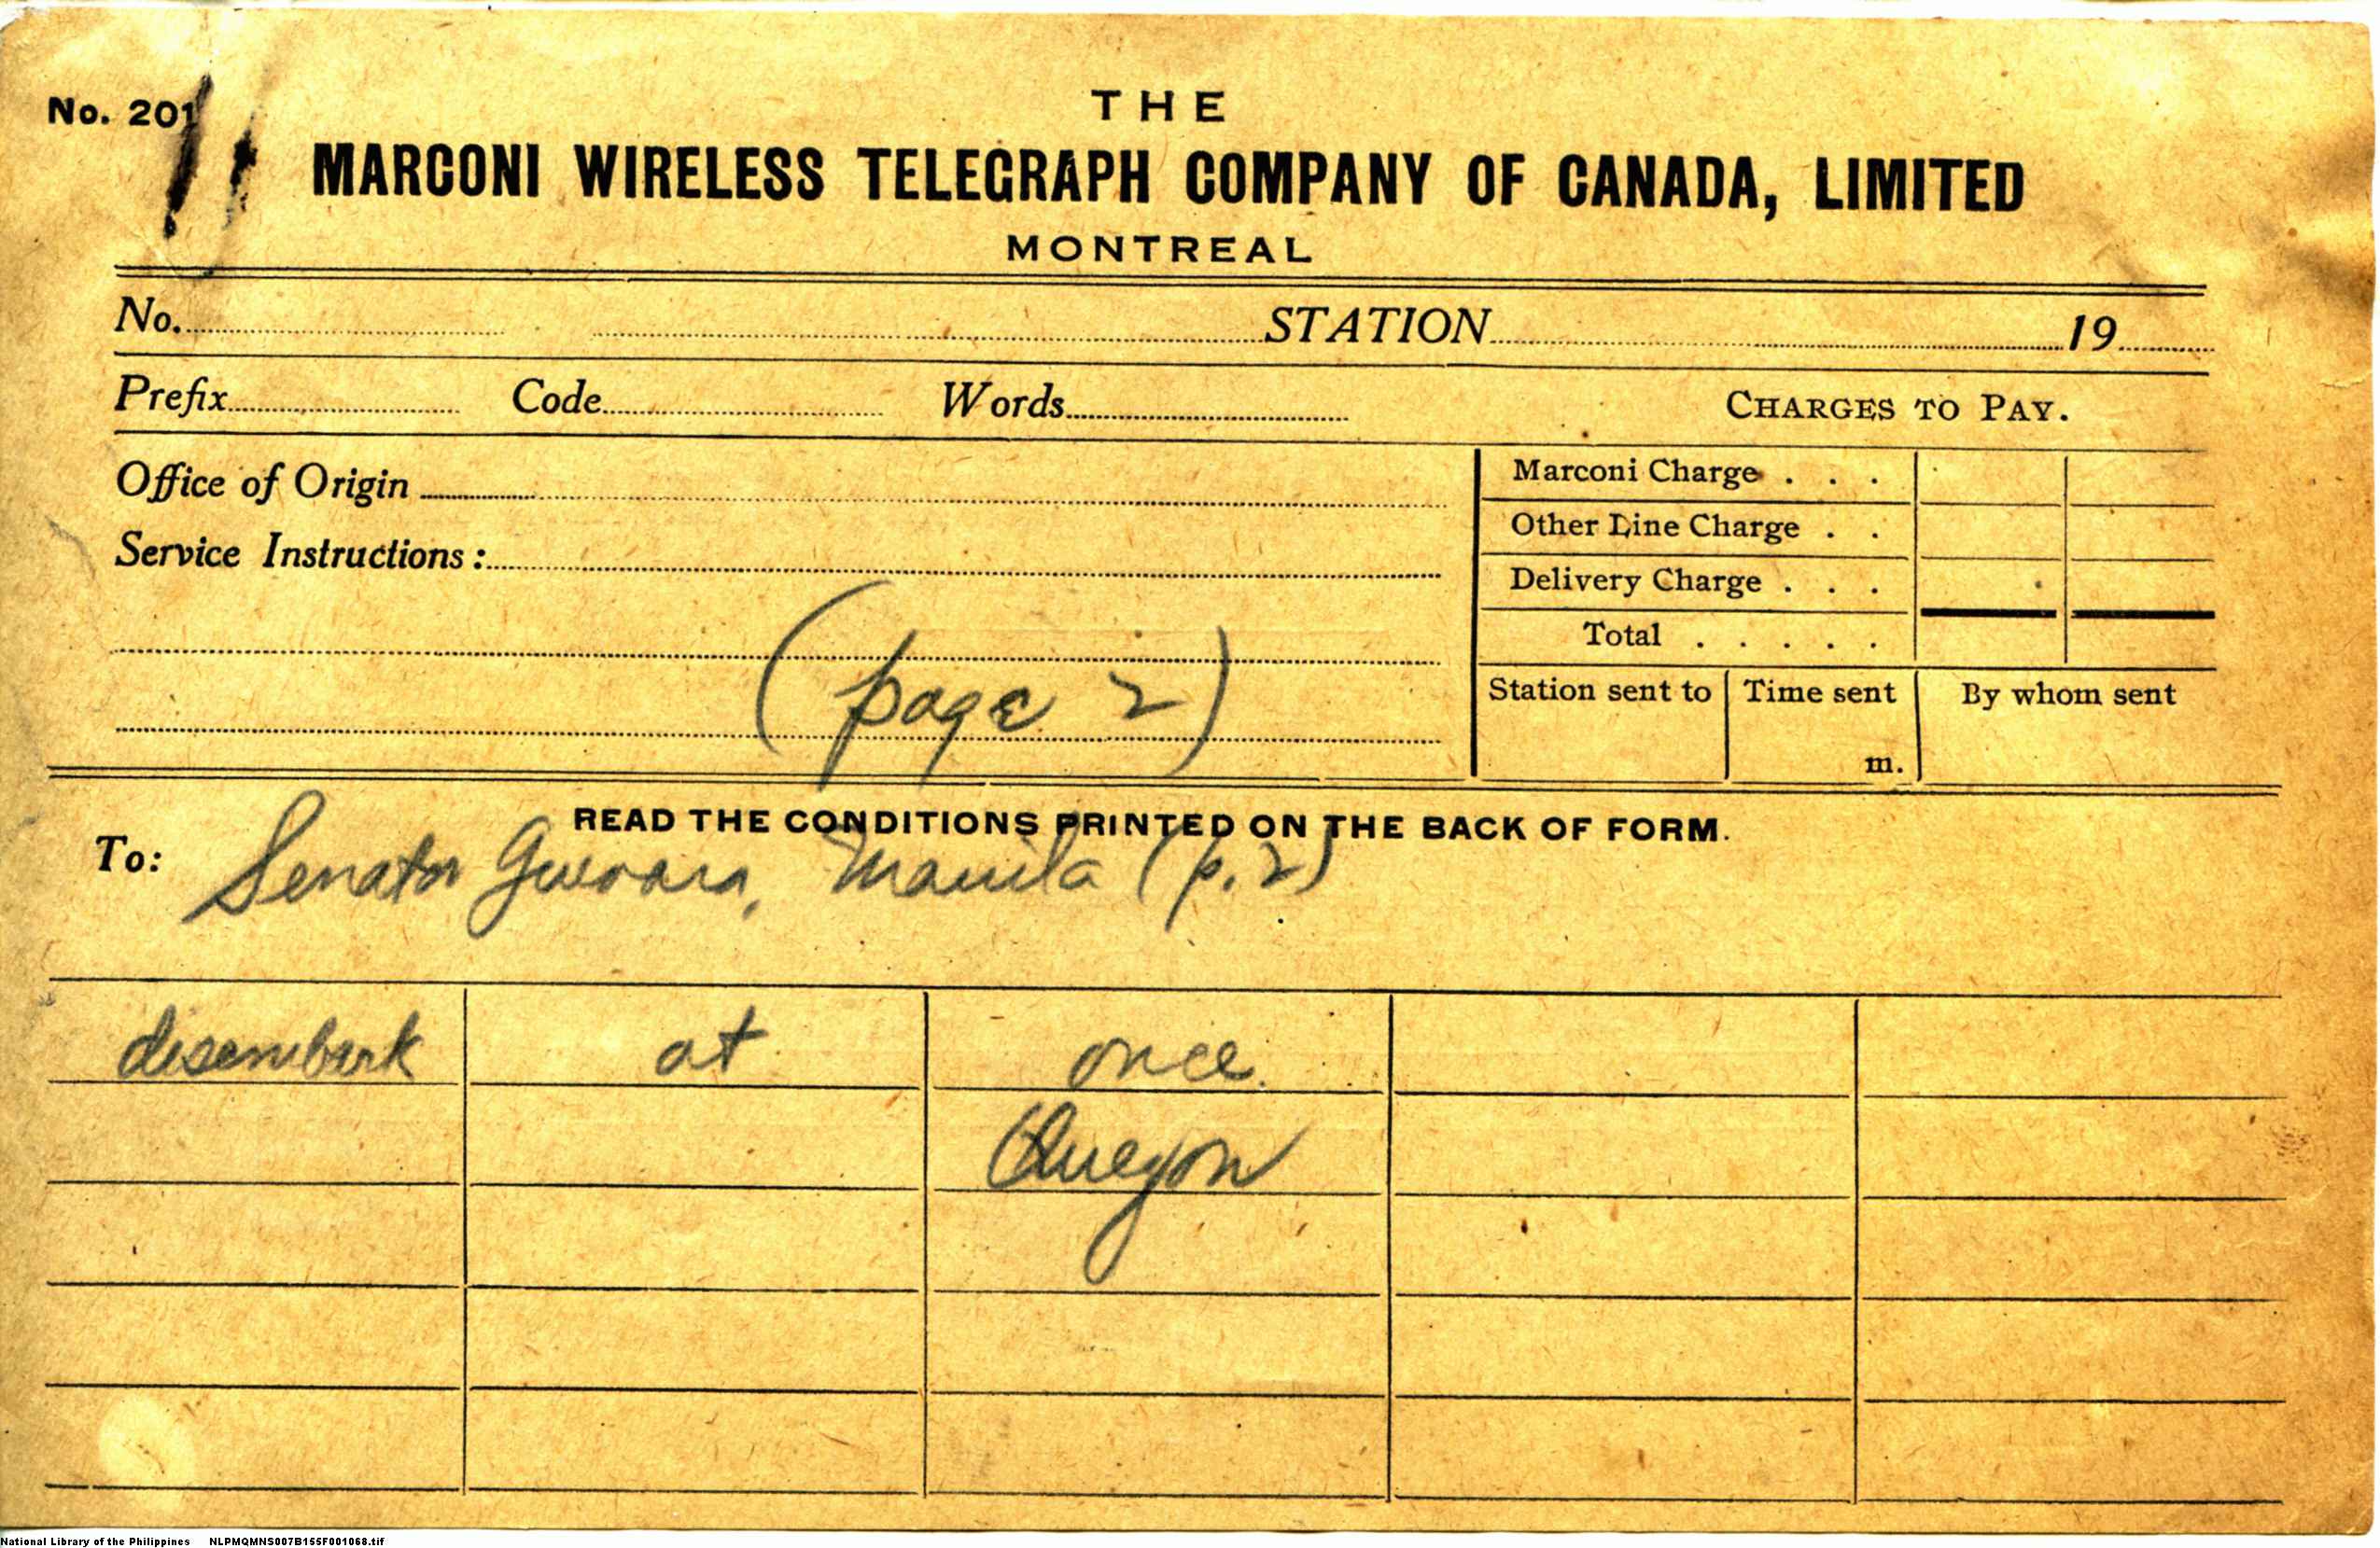 No. 201
THE
MARCONI WIRELESS TELEGRAPH COMPANY OF CANADA, LIMITED
MONTREAL
No. STATION 19
Prefix Code Words CHARGES TO PAY.
Office of Origin
Marconi Charge . . .
Other Line Charge . .
Service Instructions :
Delivery Charge . . .
Total . . . . .
(page 2)
Station sent to Time sent By whom sent
m.
READ THE CONDITIONS PRINTED ON THE BACK OF FORM.
To: Senator Guevara, Manila (p. 2)
disembark at once.
Quezon
National Library of the Philippines NLPMQMNS007B155F001068.tif